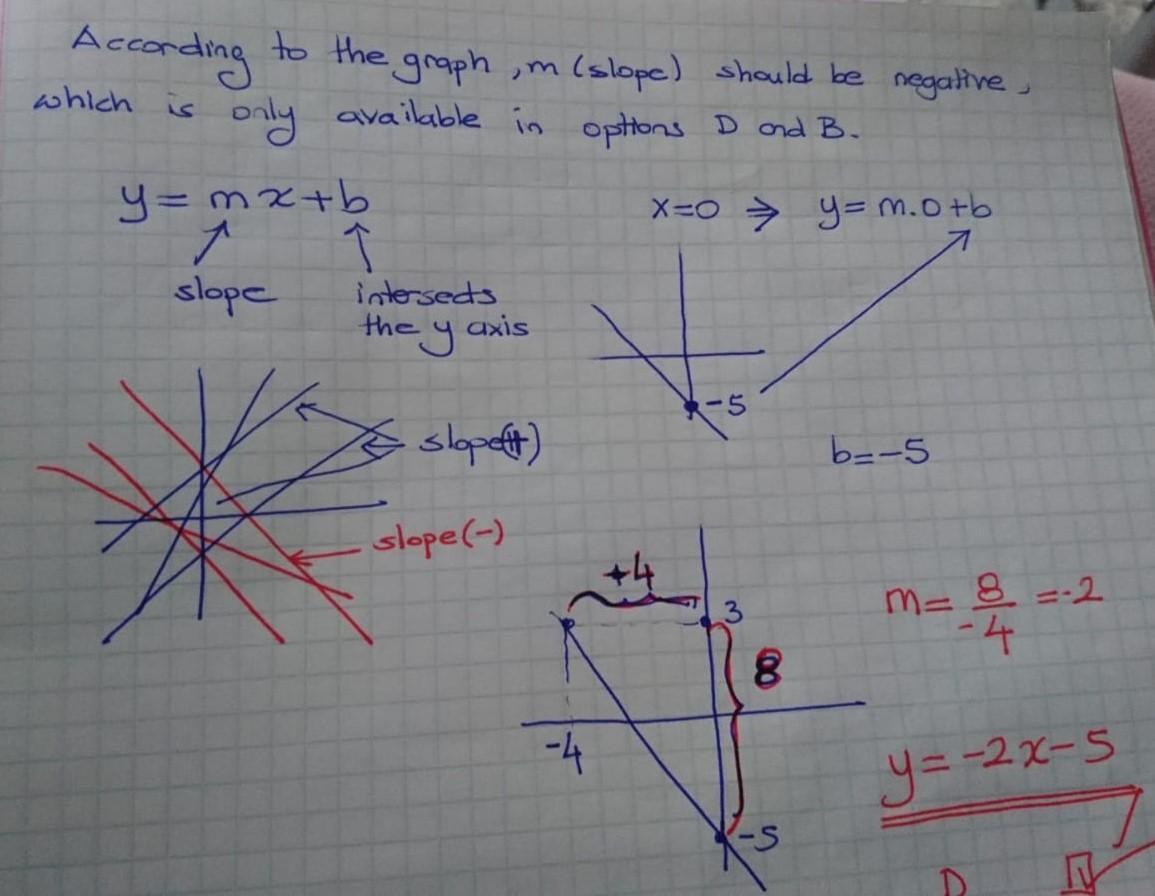 According to the graph, m (slope) should be negative,
which is only available in options D and B.
y = mx+b
slope
intersects
the y axis
x=0 ⇒ y= m.0+b
-5
b=-5
slope(+)
slope(-)
+4
3
8
-4
-5
m= 8/-4 =-2
y= -2x-5
D